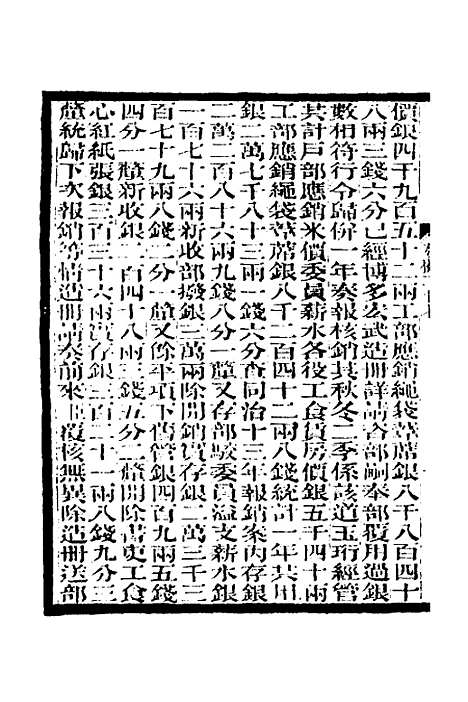 價銀四千九百五十二兩工部應銷繩袋蓆席銀八千八百四十
八兩三錢六分已經博多宏武造冊詳請咨部嗣奉部覆用過銀
數相符行令歸併一年奏報核銷其秋冬二季係該道玉珩經管
共計戶部應銷米價委員薪水各役工食賃房價銀五千四十兩
工部應銷繩袋蓆席銀八千二百四十二兩八錢統計一年共用
銀二萬七千八十三兩一錢六分查同治十三年報銷案內存銀
二萬二百八十六兩九錢八分一釐又存部駁委員溢支薪水銀
一百七十六兩新收部撥銀三萬兩除開銷實存銀二萬三千三
百七十九兩八錢二分一釐又餘平項下舊管銀四百九兩五錢
四分一釐新收銀一百四十八兩三錢五分二釐開除書吏工食
心紅紙張銀三百三十六兩實存銀二百二十一兩八錢九分三
釐統歸下次報銷等情造冊請奏前來臣覆核無異除造冊送部